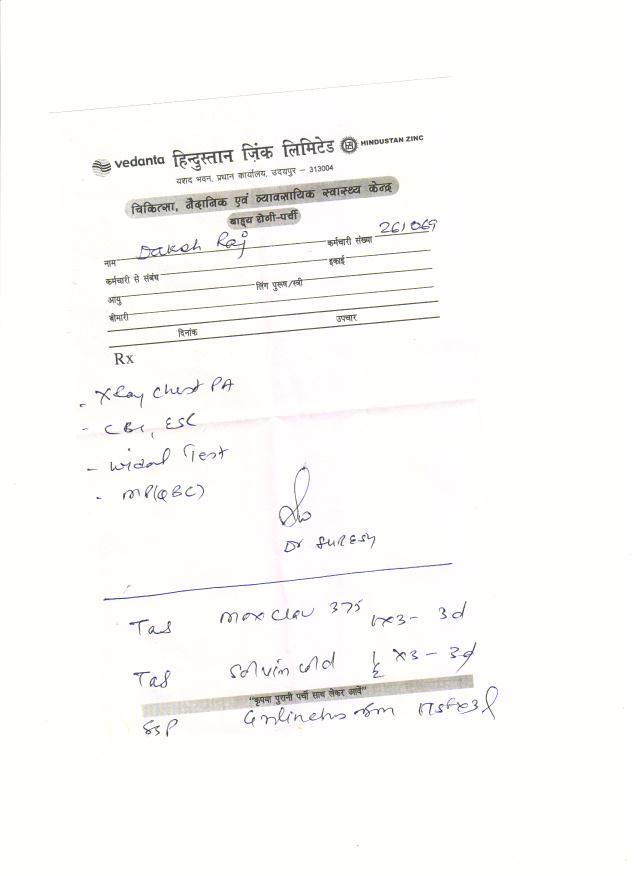 vedanta हिन्दुस्तान जिंक लिमिटेड HINDUSTAN ZINC
यशद भवन, प्रधान कार्यालय, उदयपुर – 313004
चिकित्सा, नैदानिक एवं व्यावसायिक स्वास्थ्य केन्द्र
बाह्य रोगी-पर्ची
नाम Daksh Raj कर्मचारी संख्या 261069
कर्मचारी से संबंध इकाई
आयु लिंग पुरूष/स्त्री
बीमारी
दिनांक उपचार
Rx
- Xray Chest PA
- CBC, ESR
- Widal Test
- MP(QBC)
Dr SURESH
Tab Moxclav 375 1x3 - 3d
Tab Solvin cold ½ x3 - 3d
"कृपया पुरानी पर्ची साथ लेकर आवें"
Syp